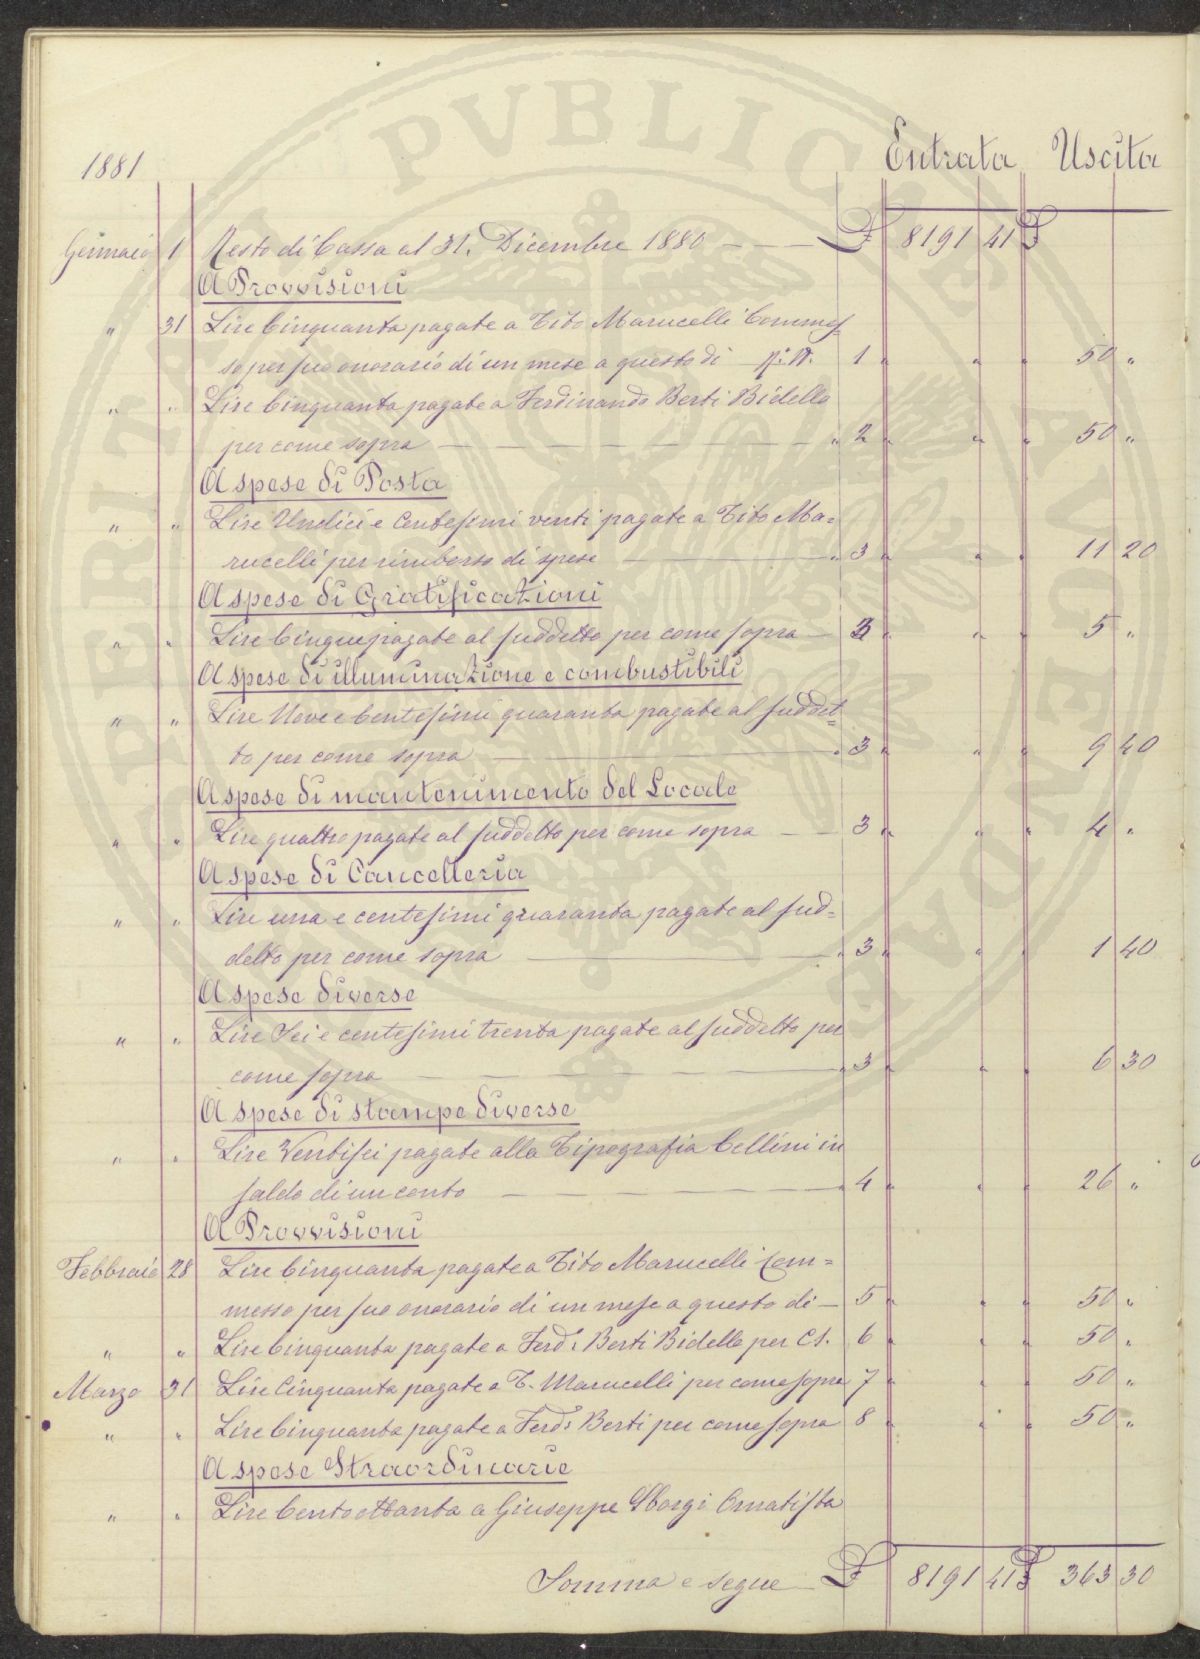 PVBLICAE VERITAS APERIT AVGENDAE
Entrata Uscita
1881
Gennaio 1 Resto di Cassa al 31. Dicembre 1880 — £ 8191 41 £
A Provvisioni
" 31 Lire Cinquanta pagate a Tito Marucelli Commes=
so per suo onorario di un mese a questo dì N: 1 " " " 50 "
" " Lire Cinquanta pagate a Ferdinando Berti Bidello
per come sopra — " 2 " " " 50 "
A spese di Posta
" " Lire Undici e Centesimi venti pagate a Tito Ma=
rucelli per rimborso di spese — " 3 " " " 11 20
A spese di Gratificazioni
" " Lire Cinque pagate al suddetto per come sopra — 3 " " " 5 "
A spese di illuminazione e combustibili
" " Lire Nove e Centesimi quaranta pagate al suddet=
to per come sopra — " 3 " " " 9 40
A spese di mantenimento del Locale
" " Lire quattro pagate al suddetto per come sopra — 3 " " " 4 "
A spese di Cancelleria
" " Lire una e centesimi quaranta pagate al sud=
detto per come sopra — " 3 " " " 1 40
A spese diverse
" " Lire Sei e centesimi trenta pagate al suddetto per
come sopra — " 3 " " " 6 30
A spese di stampe diverse
" " Lire Ventisei pagate alla Tipografia Cellini in
saldo di un conto — " 4 " " " 26 "
A Provvisioni
Febbraio 28 Lire Cinquanta pagate a Tito Marucelli Com=
messo per suo onorario di un mese a questo dì — 5 " " " 50 "
" " Lire Cinquanta pagate a Ferd: Berti Bidello per Cs. 6 " " " 50 "
Marzo 31 Lire Cinquanta pagate a T. Marucelli per come sopra 7 " " " 50 "
" " Lire Cinquanta pagate a Ferd: Berti per come sopra 8 " " " 50 "
A spese Straordinarie
" " Lire Cento ottanta a Giuseppe Sborgi Ornatista
Somma e segue — £ 8191 41 £ 363 30